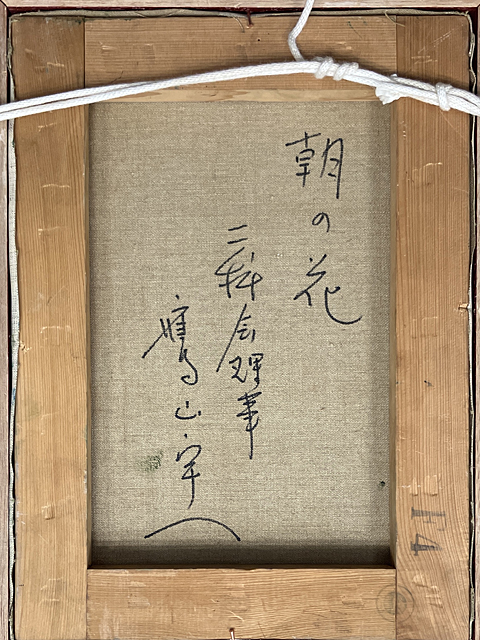 朝の花
二科会理事
鷹山宇一
F4